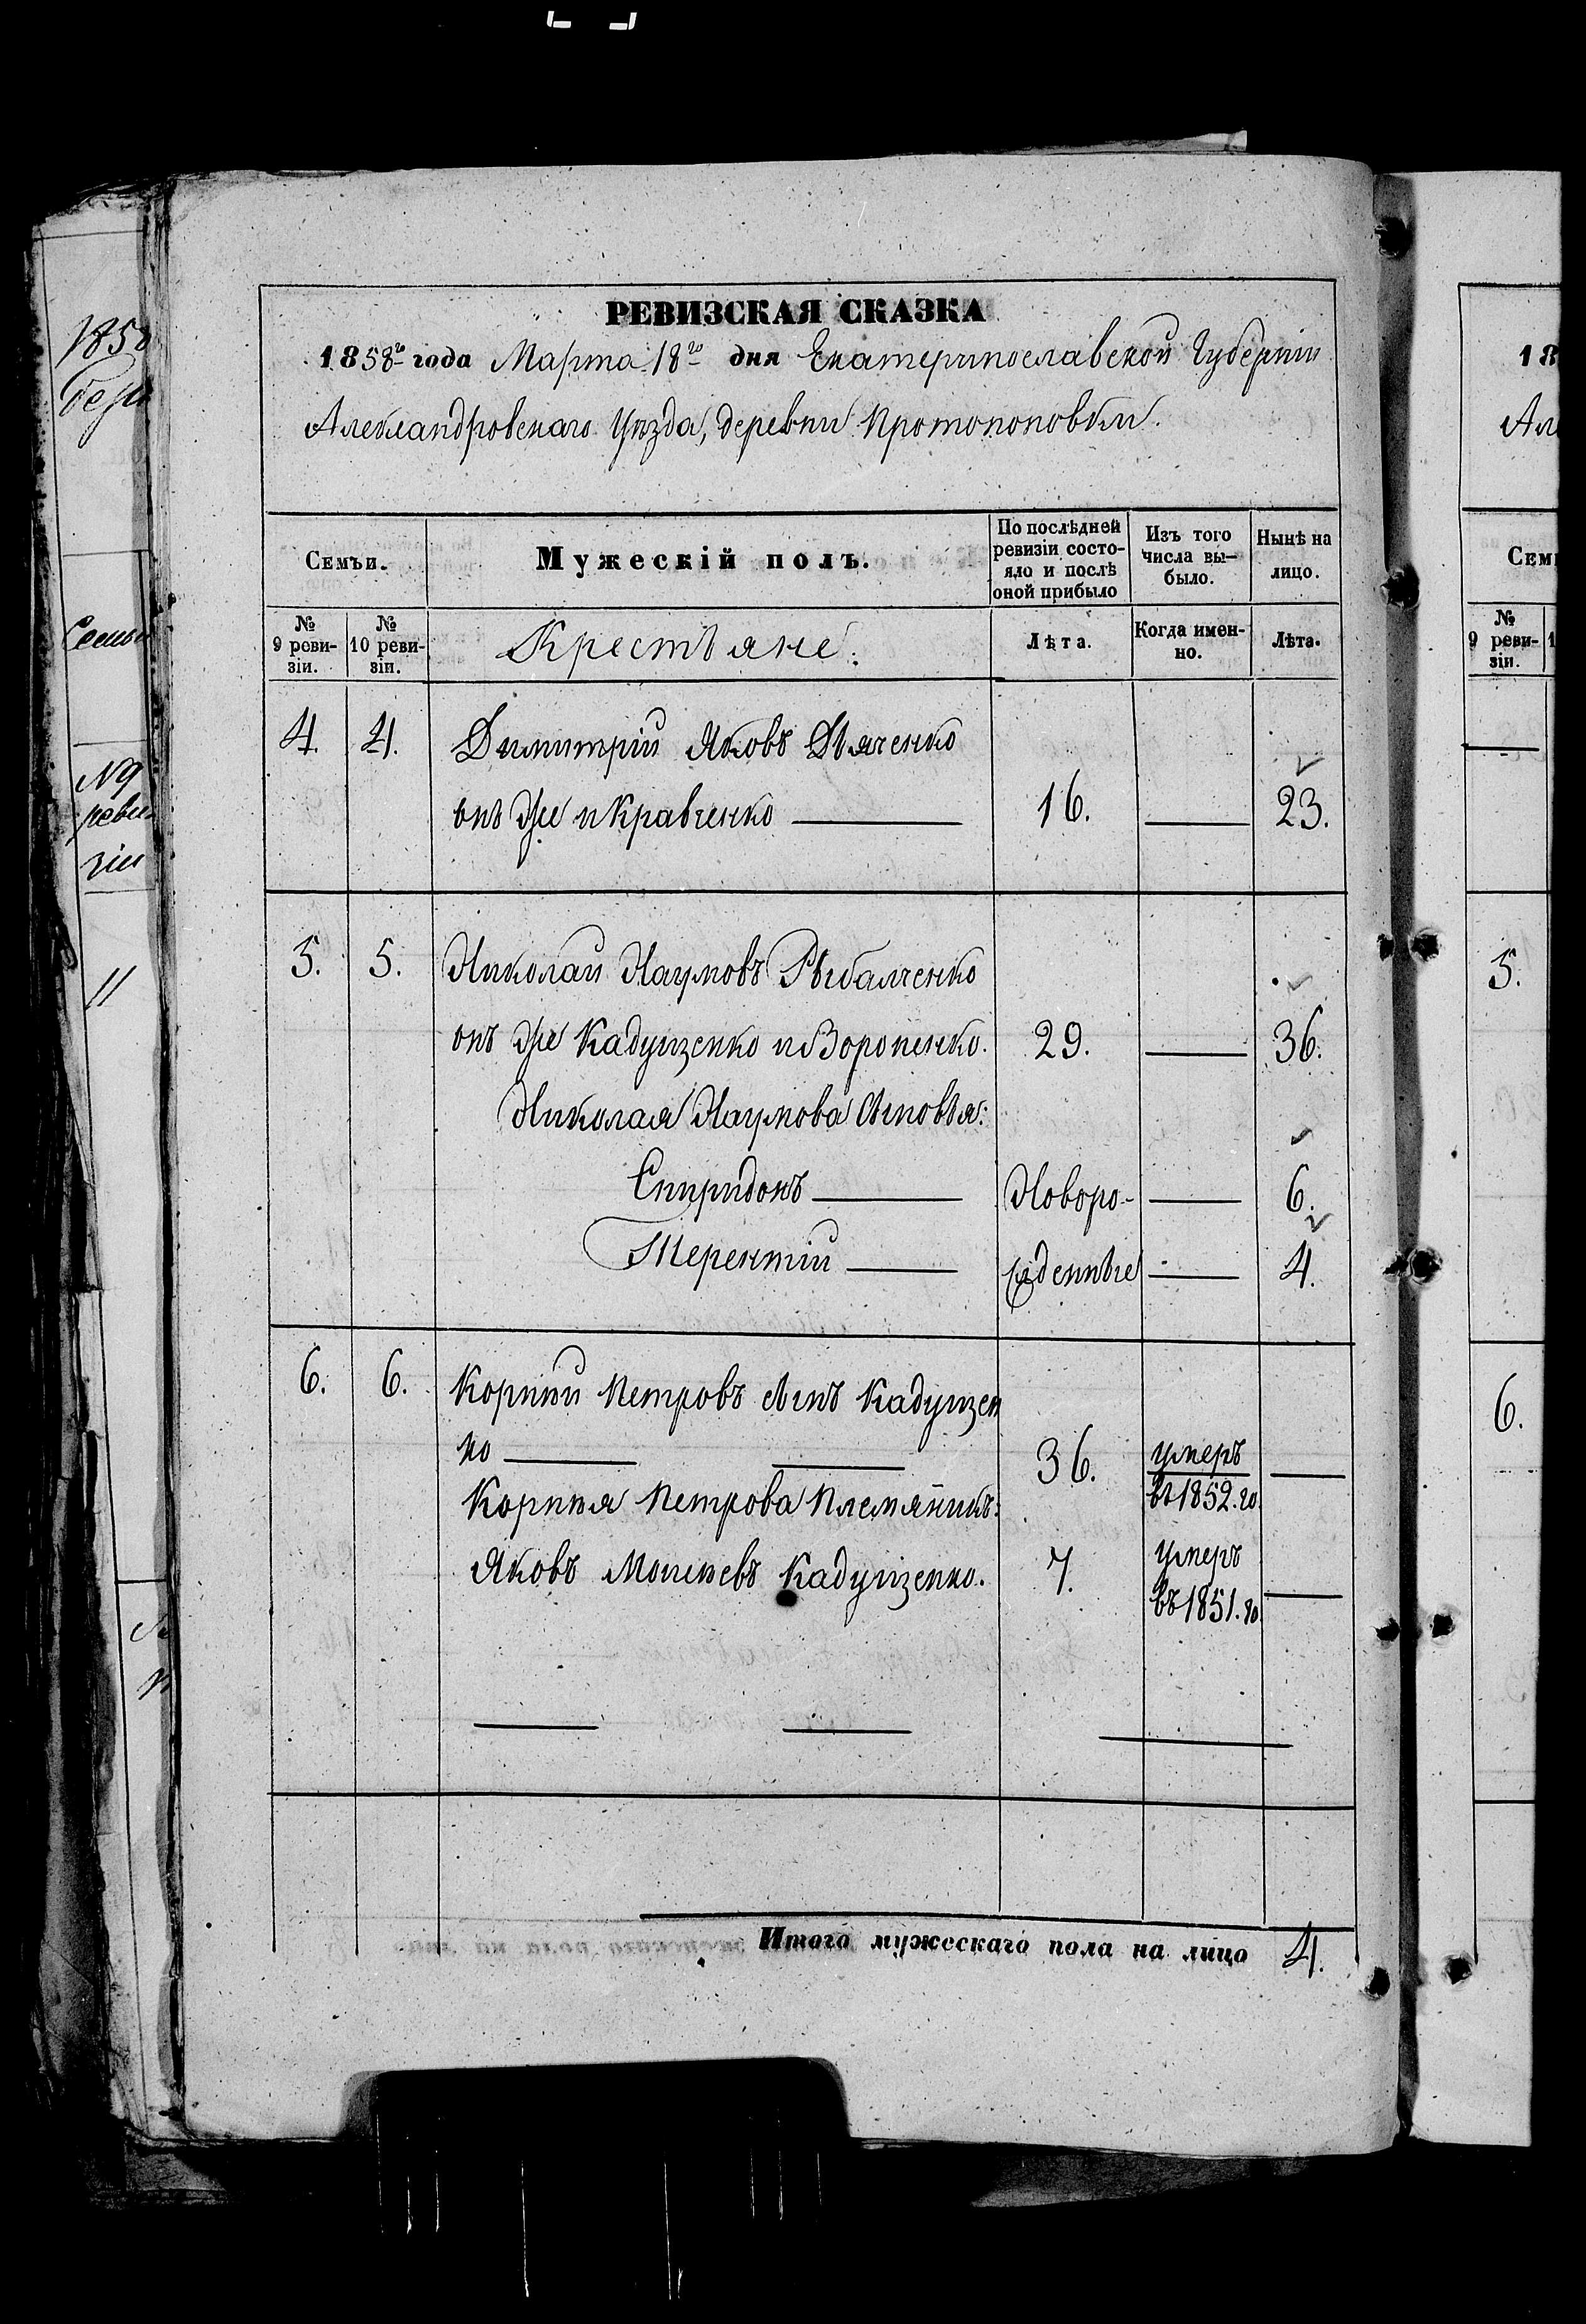 РЕВИЗСКАЯ СКАЗКА
1858го года Марта 18го дня Екатеринославской Губерніи
Александровскаго Уѣзда, деревни Протопоповки.
Семьи.
Мужескій полъ.
По послѣдней ревизіи состо-
яло и послѣ
оной прибыло
Изъ того
числа вы-
было.
Нынѣ на
лицо.
№
9 реви-
зіи.
№
10 реви-
зіи.
Крестьяне:
Лѣта.
Когда имен-
но.
Лѣта.
4. 4. Димитрій Яковъ Дяченко
онъ же и Кравченко 16. 23.
5. 5. Николай Наумовъ Рыбалченко
онъ же Кадушенко и Вороненко. 29. 36.
Николая Наумова Сыновья:
Спиридонъ Новоро- 6.
Терентій жденные 4.
6. 6. Корній Петровъ сынъ Кадушен
ко 36. умеръ
въ 1852. го
Корнія Петрова Племяникъ:
Яковъ Моисѣевъ Кадушенко. 7. умеръ
въ 1851. го
Итого мужескаго пола на лицо 4.
1858
Семьи
№ 9
реви
зіи
11
18
Але
Семь
№
9 реви-
зіи.
5.
6.